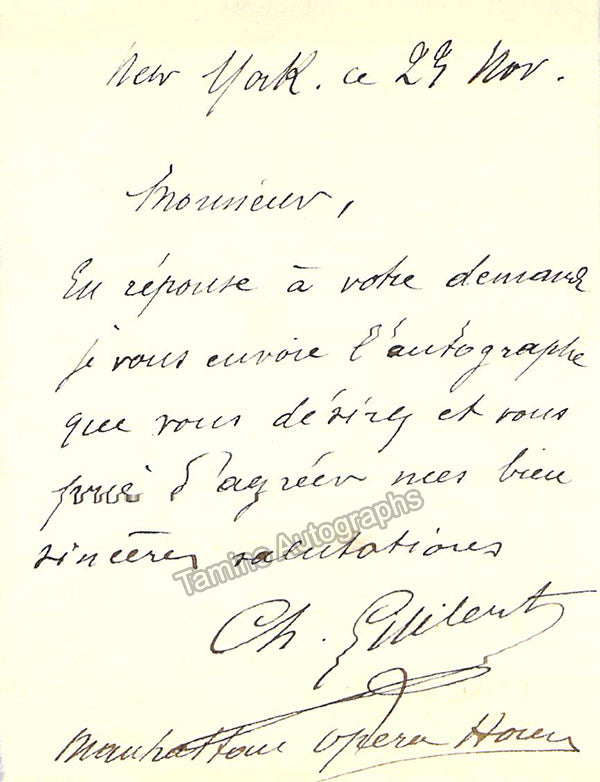 New York. ce 25 Nov.
Monsieur,
En réponse à votre demande
je vous envoie l'autographe
que vous désirez et vous
prie d'agréer mes bien
sincères salutations
Tamino Autographs
Ch. Gilibert
Manhattan Opera House